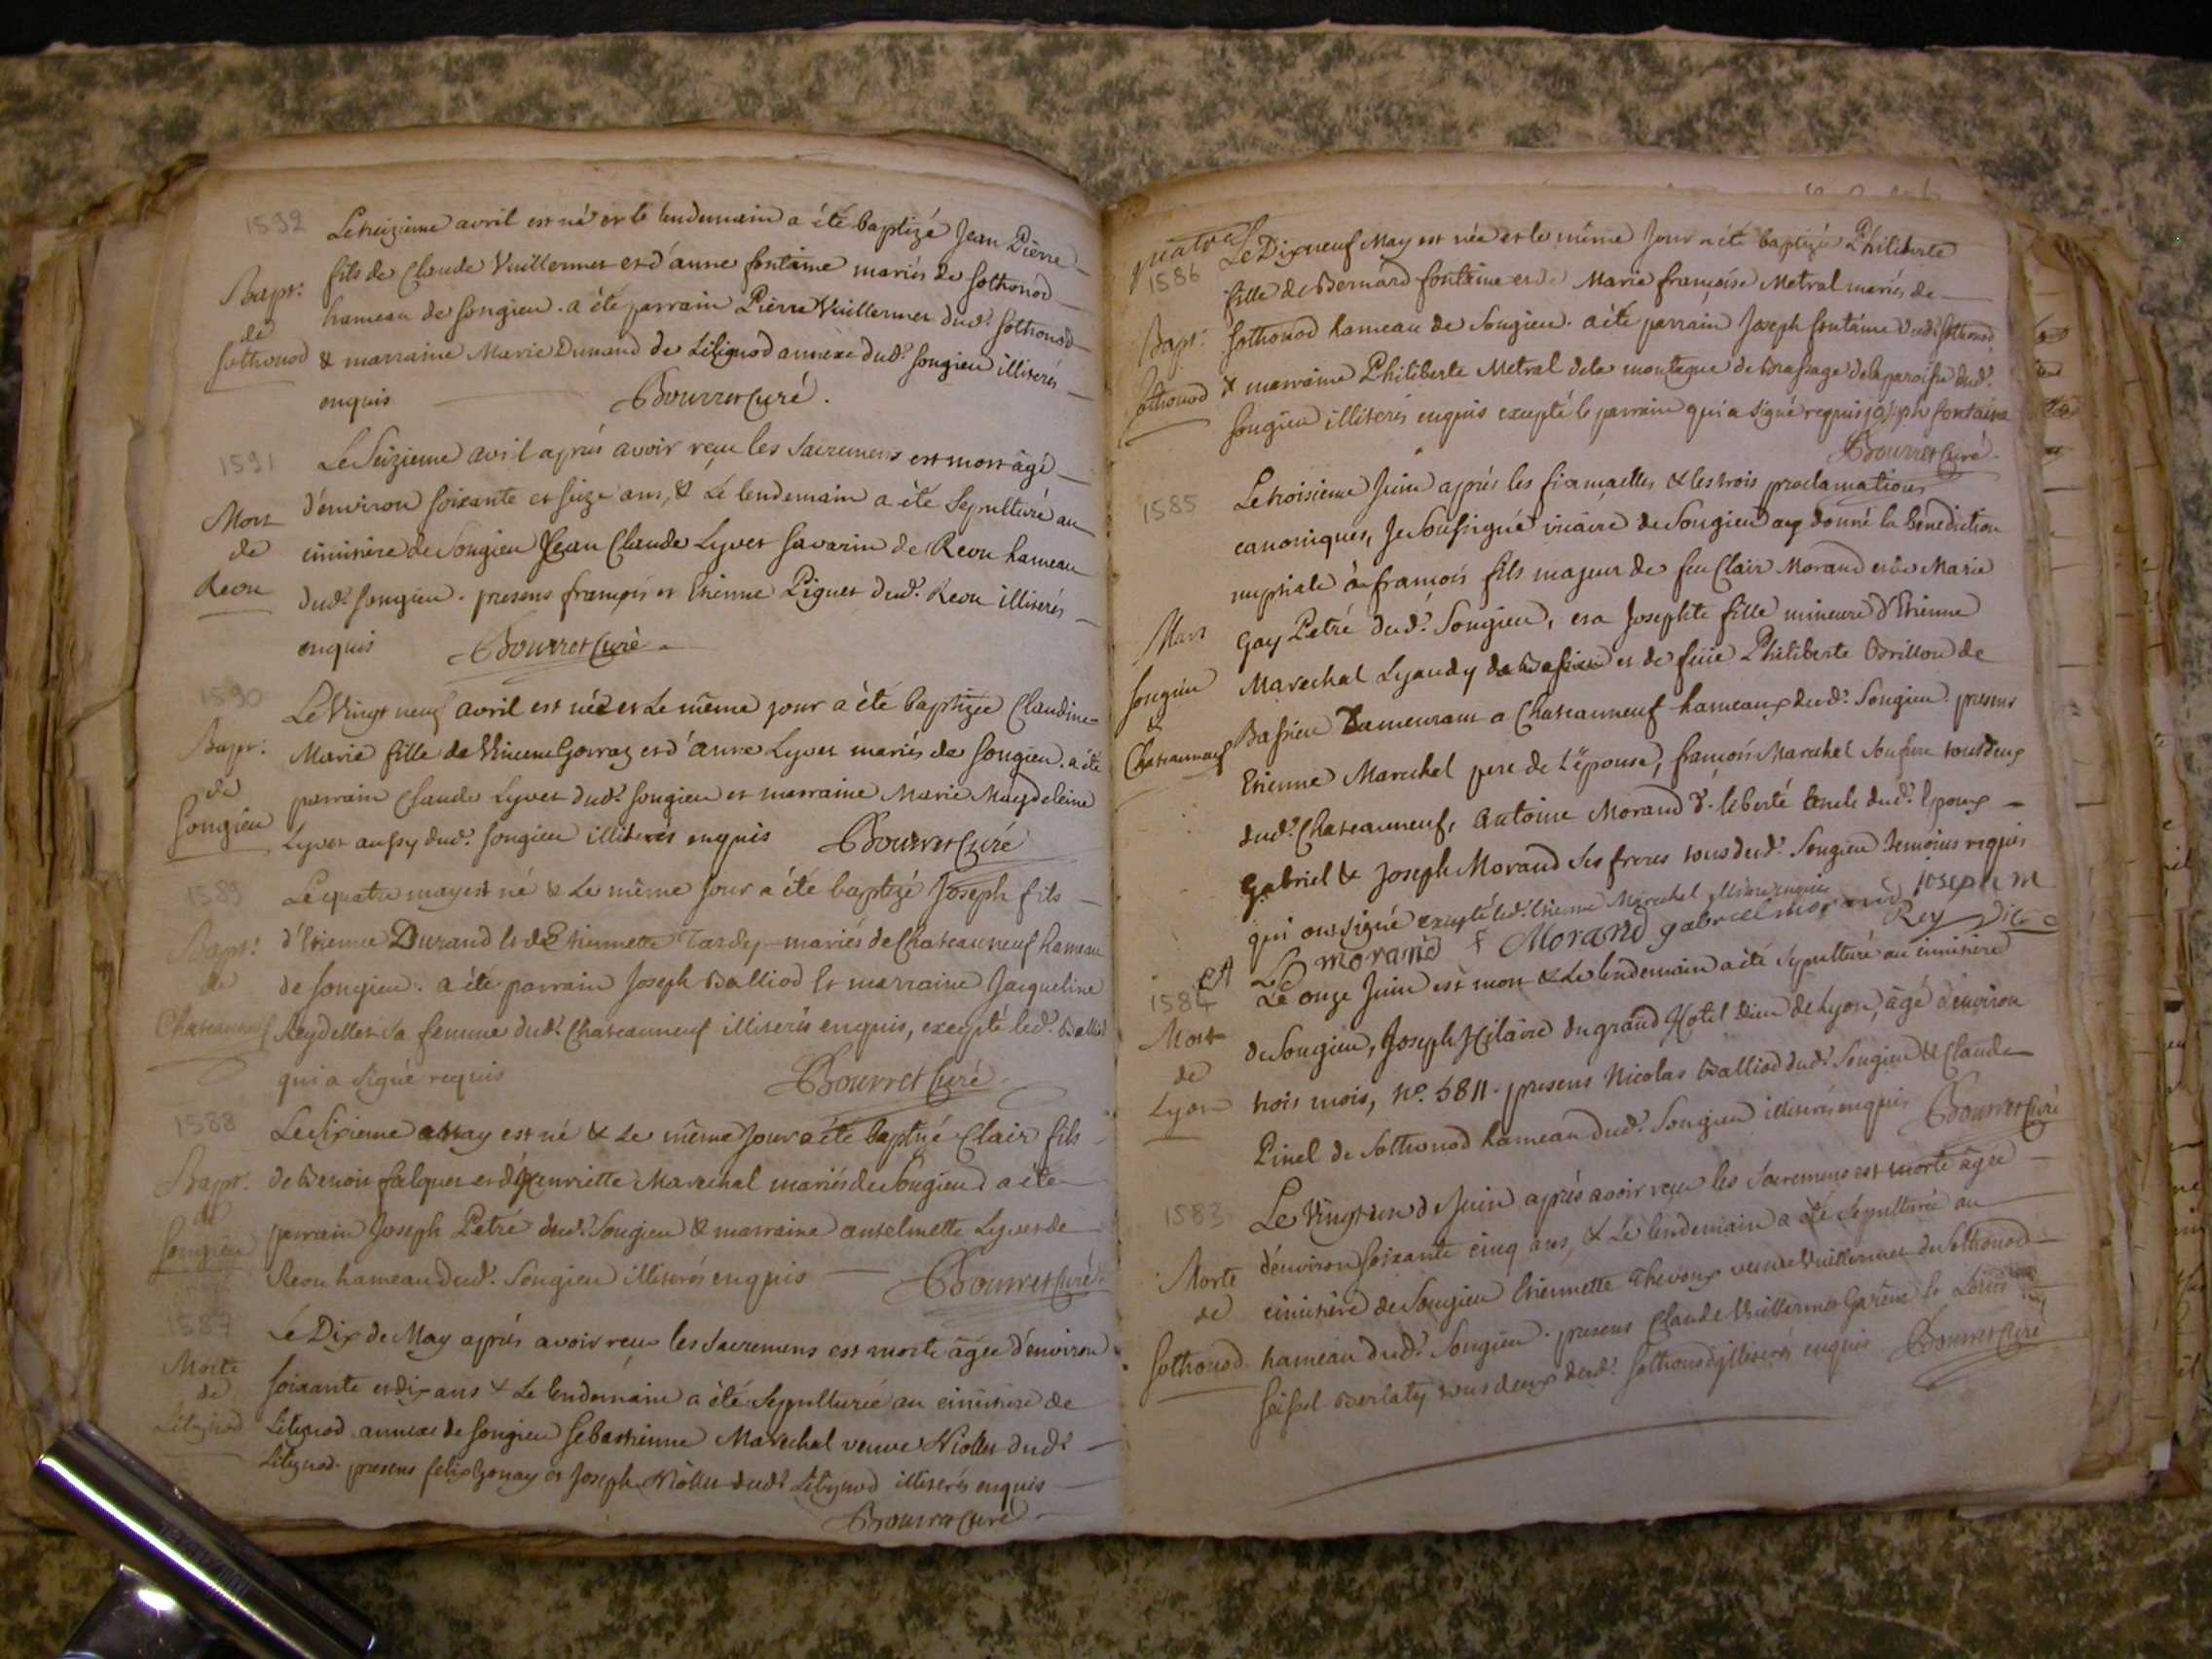 1592
Le treizieme avril est né et le lendemain a été baptizé Jean Pierre
Bapt: fils de Claude Vuillermet et d'anne fontaine mariés de Sothonod
de hameau de Songieu. a été parrain Pierre Vuillermet dud? Sothonod
Sothonod & marraine Marie Dunand de Litignod annexe dud? Songieu illiterés
enquis Bourret Curé.
1591
Le Seizieme avril aprés avoir reçu les Sacremens est mort âgé
d'environ soixante et seize ans, & Le lendemain a été Sepulturé au
Mort
de cimitière de Songieu Jean Claude Lyvet Savarin de Reou hameau
Reou dud? Songieu. presens françois et Etienne Piguet dud? Reou illiterés
enquis Bourret Curé.
1590
Le Vingt neuf avril est née et Le même jour a été baptizée Claudine
Bapt: Marie fille de Vincent Gorraz et d'anne Lyvet mariés de Songieu. a été
de parrain Claude Lyvet dud? Songieu et marraine Marie Magdeleine
Songieu Lyvet aussy dud? Songieu illiterés enquis Bourret Curé
1589
Le quatre may est né & Le même Jour a été baptizé Joseph fils
Bapt: d'Etienne Durand et d'Etiennette Tardy mariés de Chateauneuf hameau
de de Songieu. a été parrain Joseph Balliod et marraine Jacqueline
Chateauneuf Reydellet Sa femme dud? Chateauneuf illiterés enquis, excepté led? Balliod
qui a Signé requis Bourret Curé
1588
Le Sixieme May est né & Le même Jour a été baptizé Clair fils
Bapt: de Benoit falquet et d'henriette Marechal mariés de Songieu. a été
de parrain Joseph Petré dud? Songieu & marraine anselmette Lyvet de
Songieu Reou hameau dud? Songieu illiterés enquis Bourret Curé
1587
Le Dix de May aprés avoir reçu les Sacremens est morte âgée d'environ
Morte
de soixante et dix ans & Le lendemain a été Sepulturée au cimitiere de
Litignod Litignod annexe de Songieu Sebastienne Marechal veuve Niollet dud?
Litignod. presens felix Gonay et Joseph Niollet dud? Litignod illiterés enquis
Bourret Curé
quatre
1586 Le Dixneuf May est née et le même Jour a été baptizée Philiberte
fille de Bernard fontaine et de Marie françoise Metral mariés de
Bapt: Sothonod hameau de Songieu. a été parrain Joseph fontaine dud? Sothonod
Sothonod & marraine Philiberte Metral de la montagne de Brassage de la paroisse dud?
Songieu illiterés enquis excepté le parrain qui a Signé requis joseph fontaine
Bourret Curé
1585
Le troisieme Juin aprés les fiancailles & les trois proclamations
canoniques, Je Soussigné vicaire de Songieu ay donné la benediction
nuptiale à françois fils majeur de feu Clair Morand et de Marie
Mars Gay Petré dud? Songieu, et a Josephte fille mineure d'Etienne
Songieu Marechal Lyaudy de Bassieu et de feüe Philiberte Brillon de
& Bassieu Demeurant a Chateauneuf hameaux dud? Songieu. presens
Chateauneuf Etienne Marechal pere de L'épouse, françois Marechal Son frere tous deux
dud? Chateauneuf, Antoine Morand oncle dud? Epoux
Gabriel & Joseph Morand Ses freres tous dud? Songieu temoins requis
qui ont Signé excepté led? Etienne Marechal illiteré enquis
morand f Morand gabriel morand joseph m
Rey
1584 Le onze Juin est mort & Le lendemain a été Sepulturé au cimitiere
Mort de Songieu, Joseph Hilaire du grand Hotel Dieu de Lyon, âgé d'environ
de
Lyon trois mois, N°. 5811. presens Nicolas Balliod dud? Songieu & Claude
Pinel de Sothonod hameau dud? Songieu illiterés enquis Bourret Curé
1583 Le Vingt un de Juin aprés avoir reçu les Sacremens est morte âgée
Morte d'environ soixante cinq ans, & Le lendemain a été Sepulturée au
de cimitière de Songieu Etiennette Thevoux veuve Vuillermet de Sothonod
Sothonod hameau dud? Songieu. presens Claude Vuillermet et Louis
Seissel tous deux dud? Sothonod illiterés enquis Bourret Curé